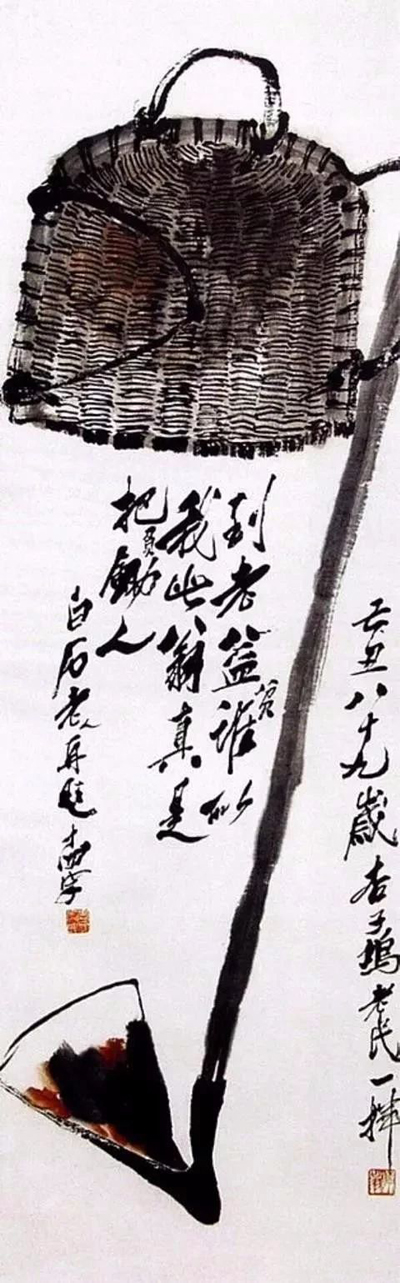 己丑八十九歲杏子塢老民一揮
到老益貧誰似
我此翁真是
把負鋤人
白石老人再題十四字